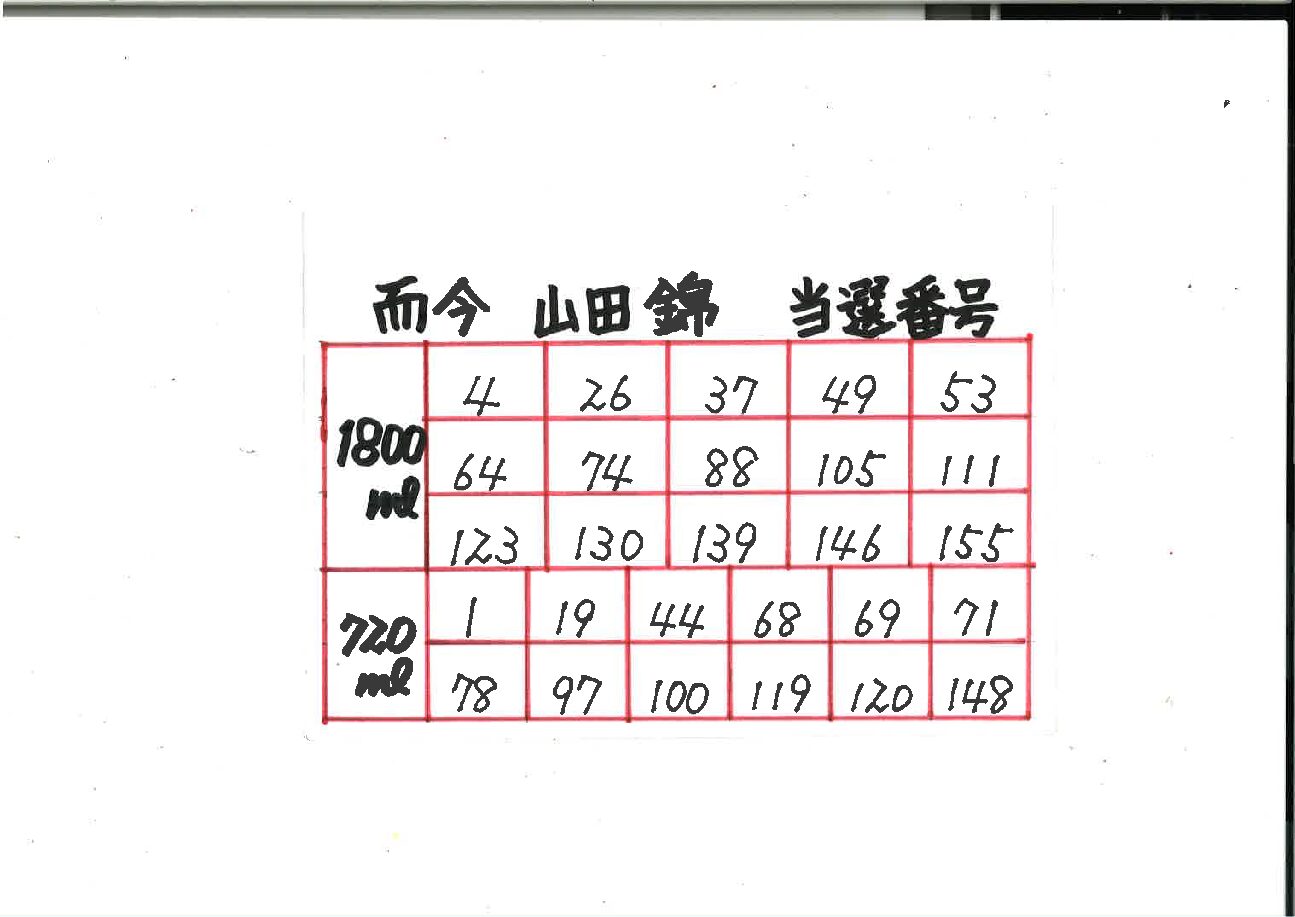 而今 山田錦 当選番号
1800 ml
4 26 37 49 53
64 74 88 105 111
123 130 139 146 155
720 ml
1 19 44 68 69 71
78 97 100 119 120 148